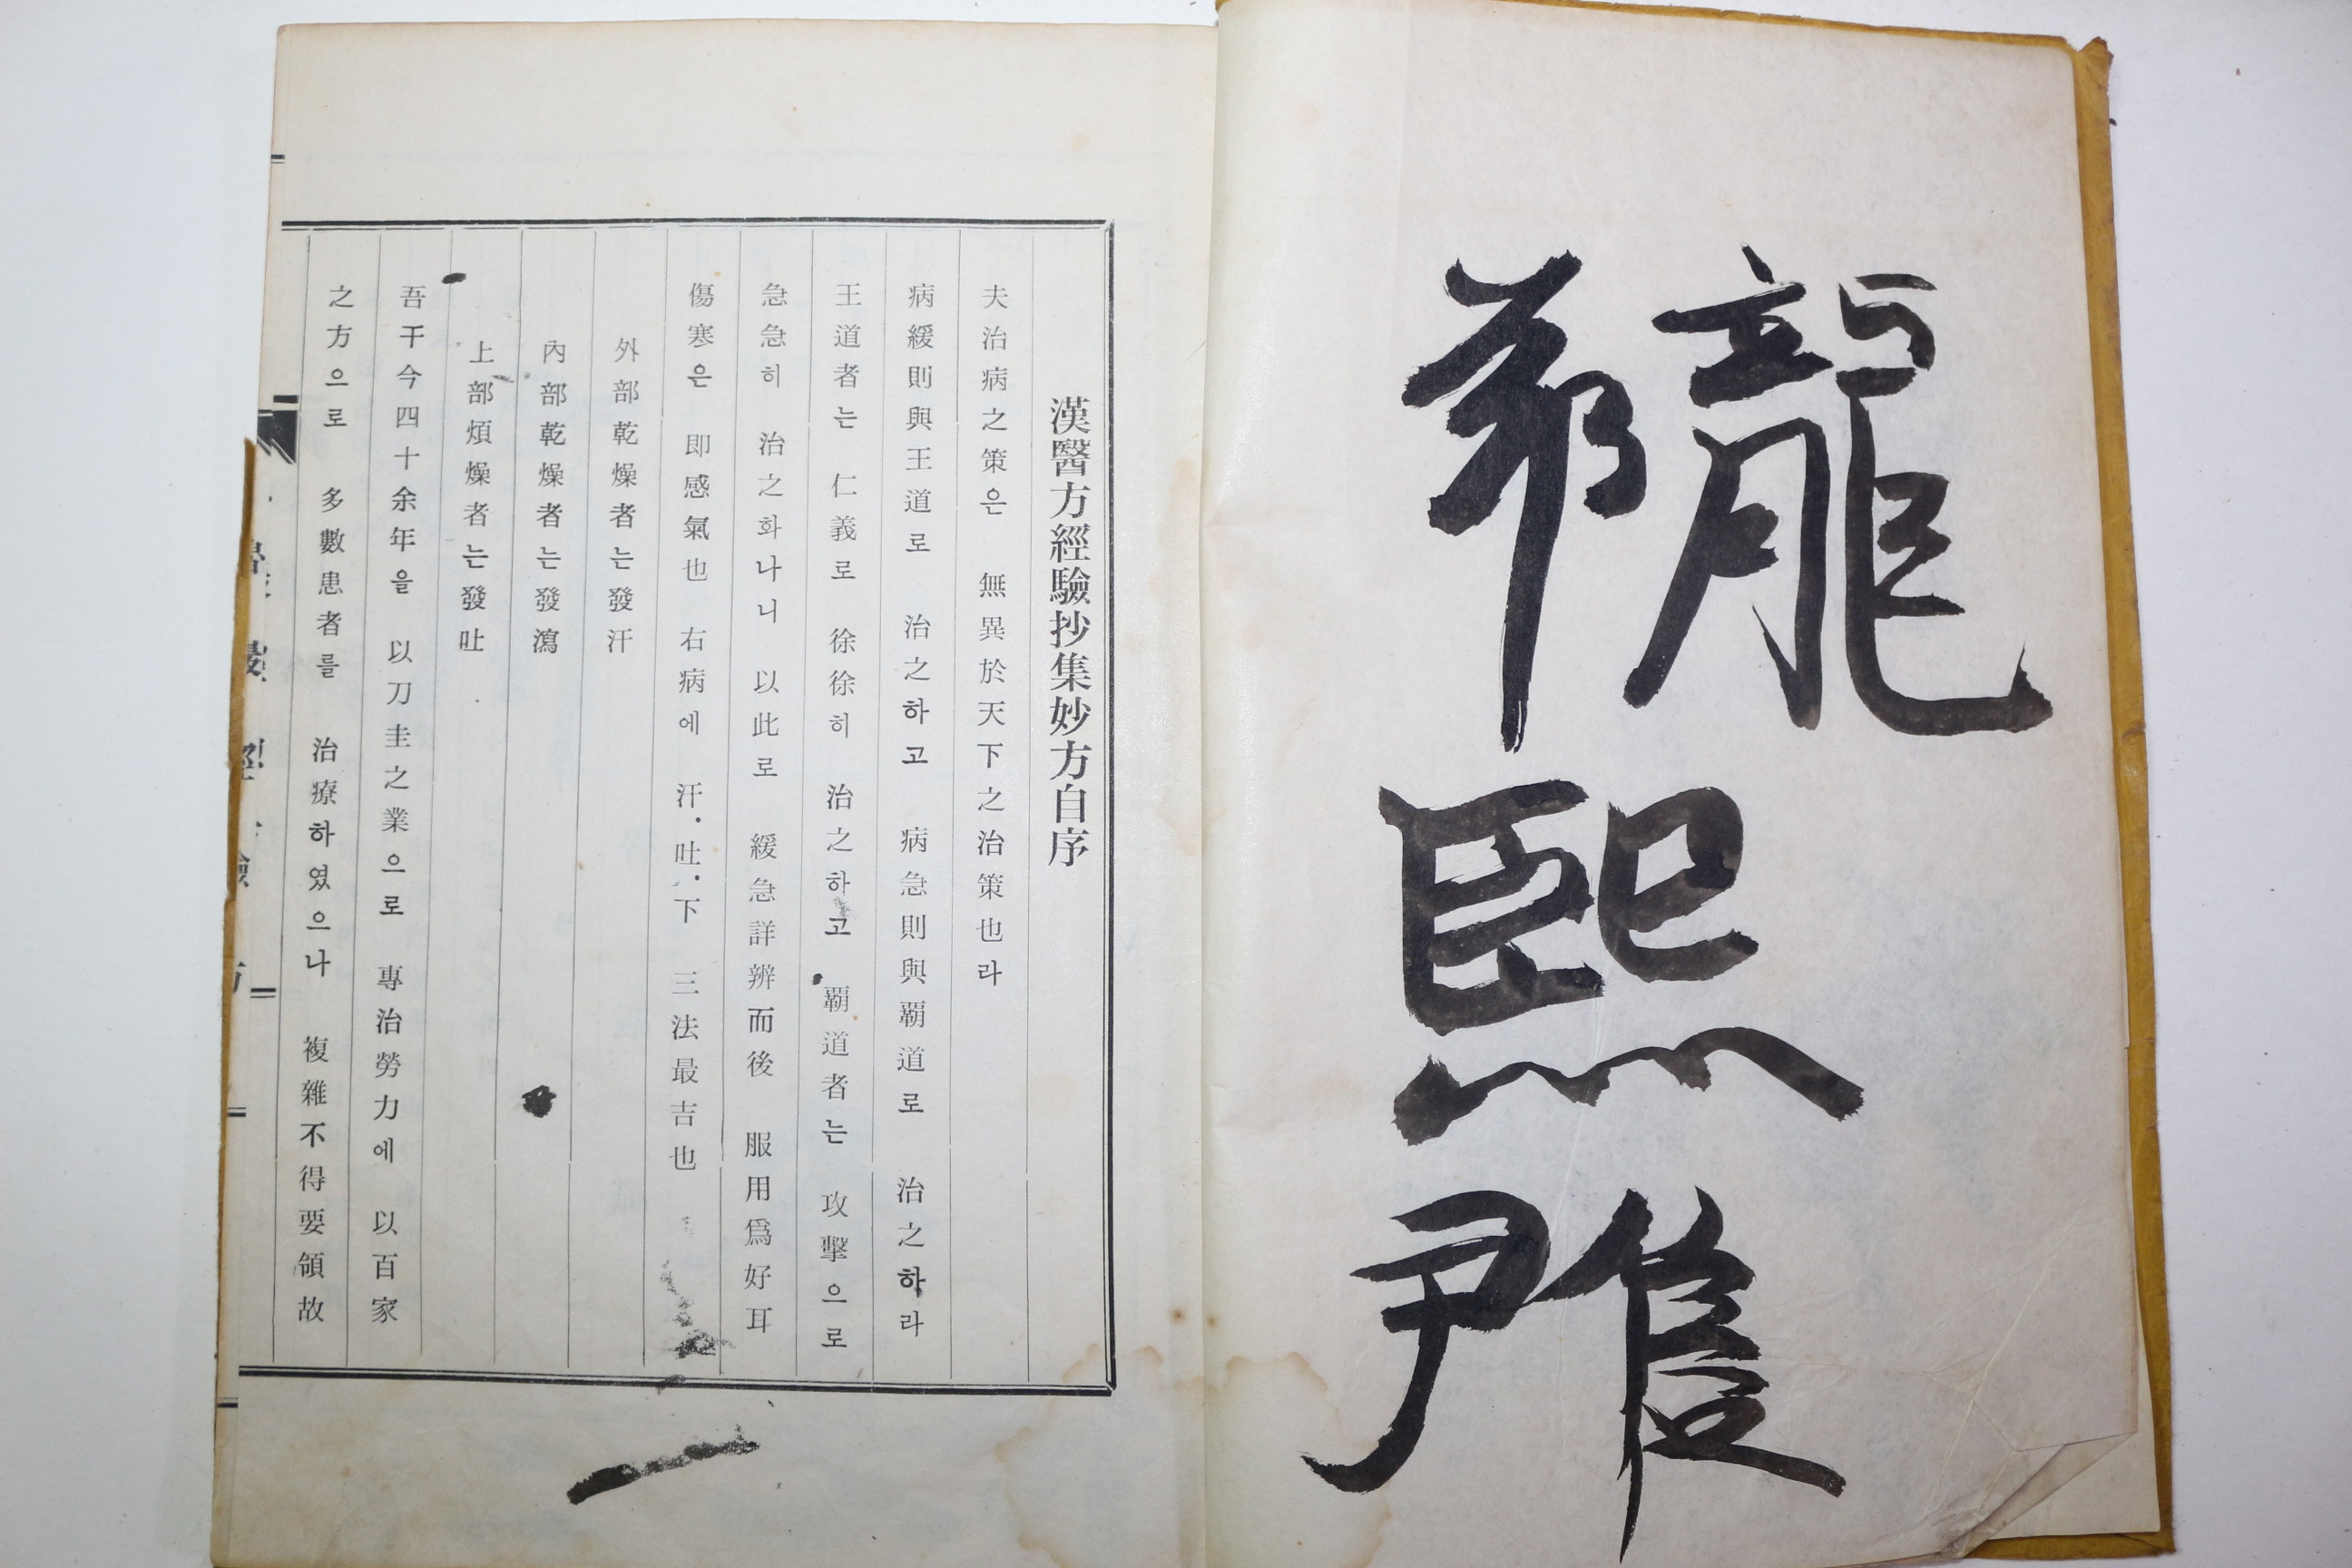 熙
漢醫方經驗抄集妙方自序
夫治病之策은 無異於天下之治策也라
病緩則與王道로 治之하고 病急則與覇道로 治之하라
王道者는 仁義로 徐徐히 治之하고 覇道者는 攻擊으로
急急히 治之화나니 以此로 緩急詳辨而後 服用爲好耳
傷寒은 即感氣也 右病에 汗·吐·下 三法最吉也
外部乾燥者는發汗
內部乾燥者는發瀉
上部煩燥者는發吐
吾干今四十余年을 以刀圭之業으로 專治勞力에 以百家
之方으로 多數患者를 治療하였으나 複雜不得要領故